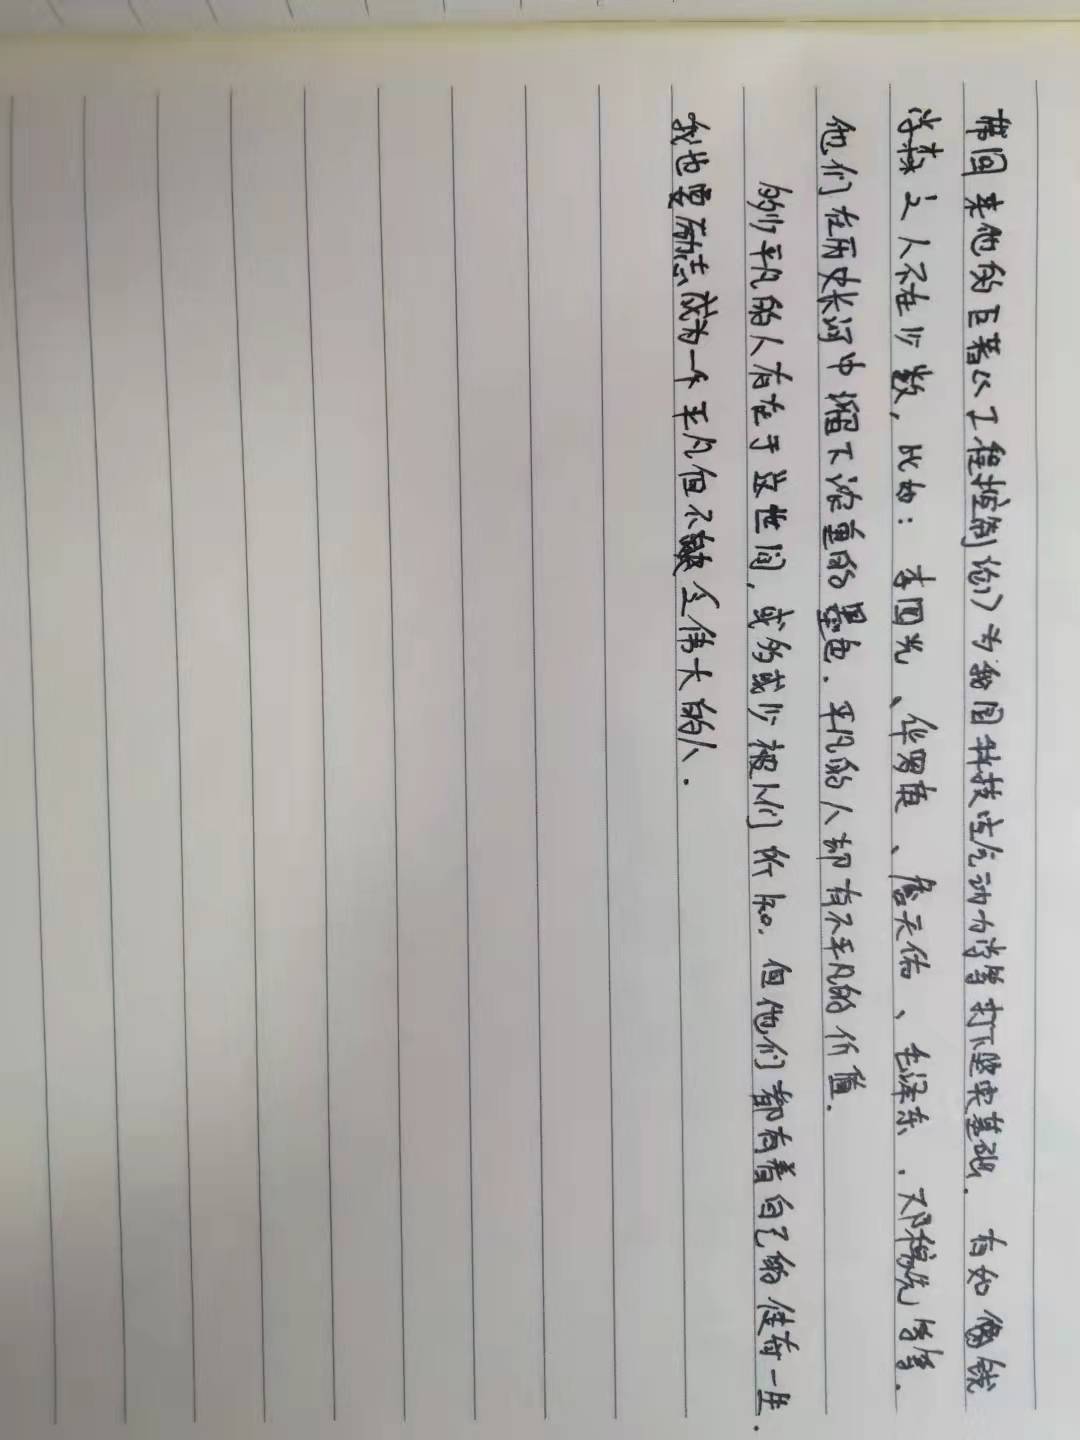 带回来他的巨著《工程控制论》为我国科技空气动力学等打下坚实基础. 有如像钱
学森之人不在少数, 比如: 李四光、华罗庚、詹天佑、毛泽东、邓稼先等等.
他们在历史长河中留下浓重的墨色. 平凡的人却有不平凡的价值.
多少平凡的人存在于这世间, 或多或少被人们所知. 但他们都有着自己的使命一生.
我也要励志成为一个平凡但不缺乏伟大的人.